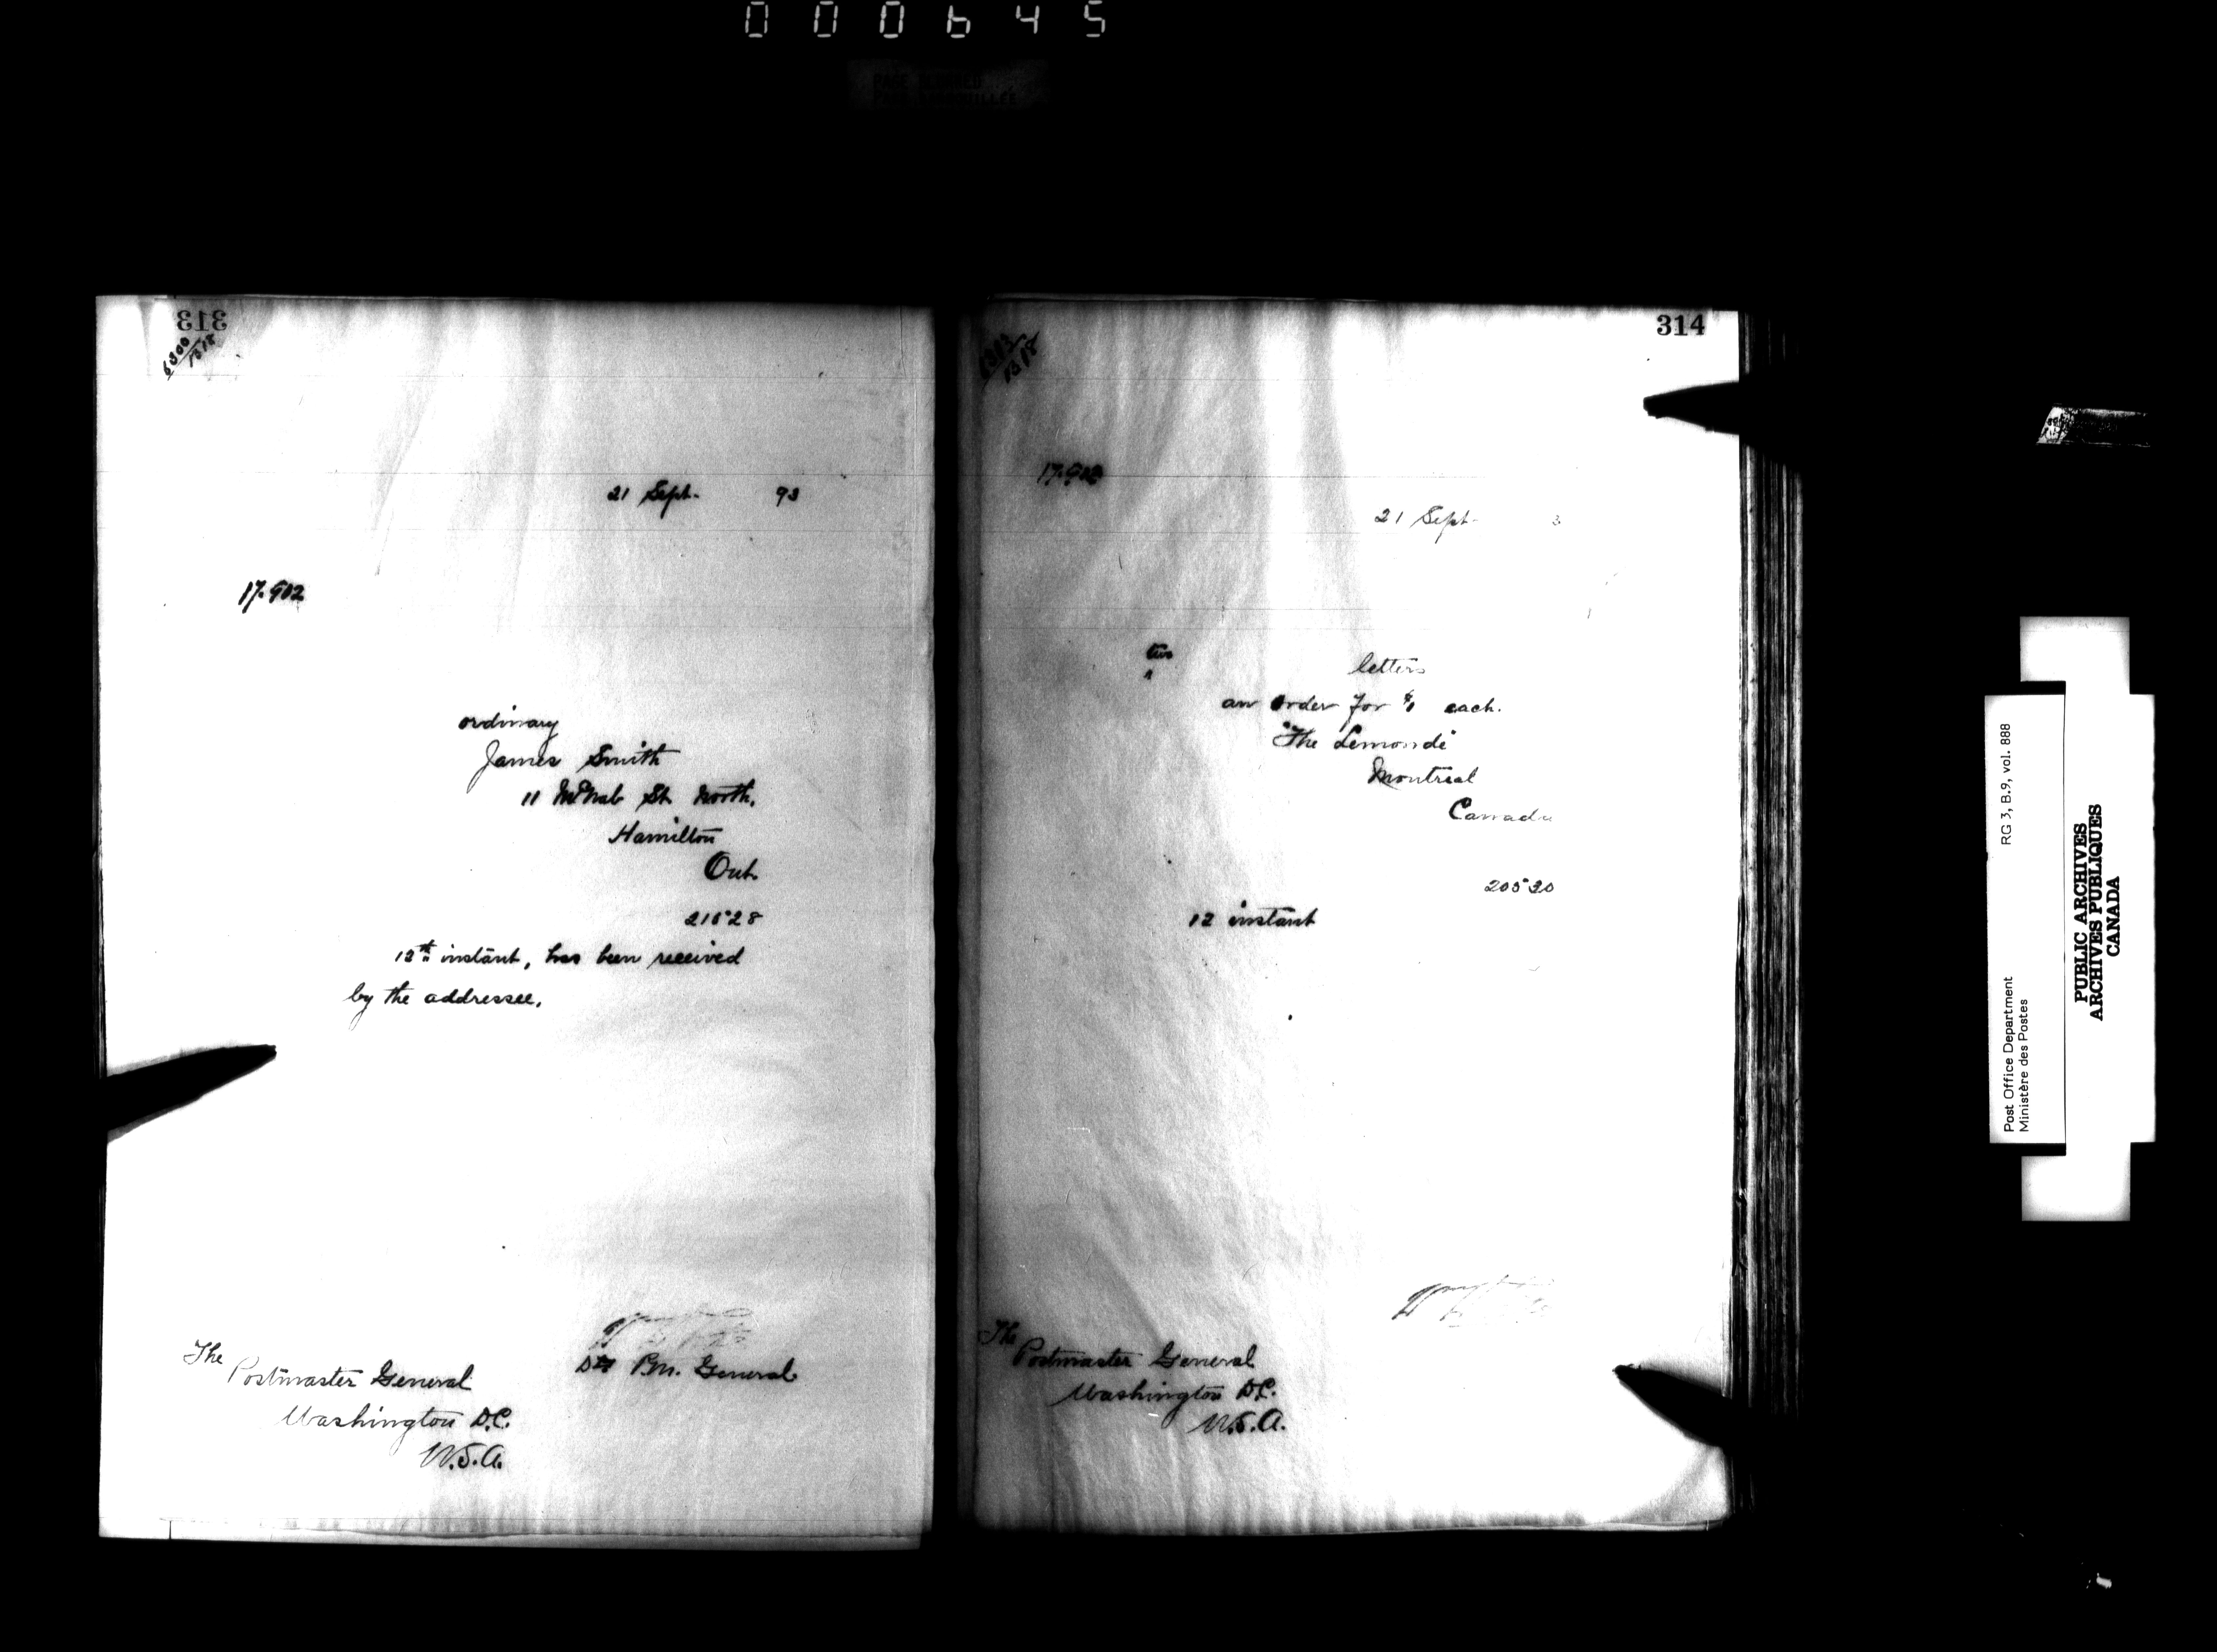 000645
313
6300/1318
21 Sept. 93
17.902
ordinary
James Smith
11 McNab St. North,
Hamilton
Ont.
21528
12th instant, has been received
by the addressee.
Dty P.M. General
The
Postmaster General
Washington D.C.
U.S.A.
314
17.902
21 Sept. 3
two
letters
an order for $1 each.
"The Lemonde"
Montreal
Canada
20530
12 instant
The
Postmaster General
Washington D.C.
U.S.A.
Post Office Department RG 3, B.9, vol. 888
Ministère des Postes
PUBLIC ARCHIVES
ARCHIVES PUBLIQUES
CANADA